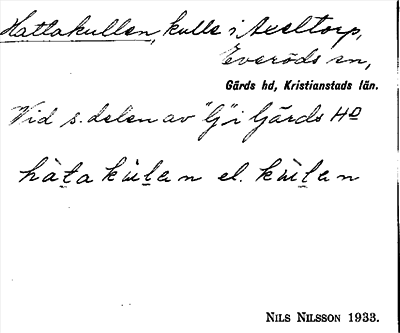 Hattakullen, kulle i Axeltorp,
Everöds sn,
Gärds hd, Kristianstads län.
Vid s. delen av "G" i Gärds Hd
hàta kùlan el. kùlan
NILS NILSSON 1933.